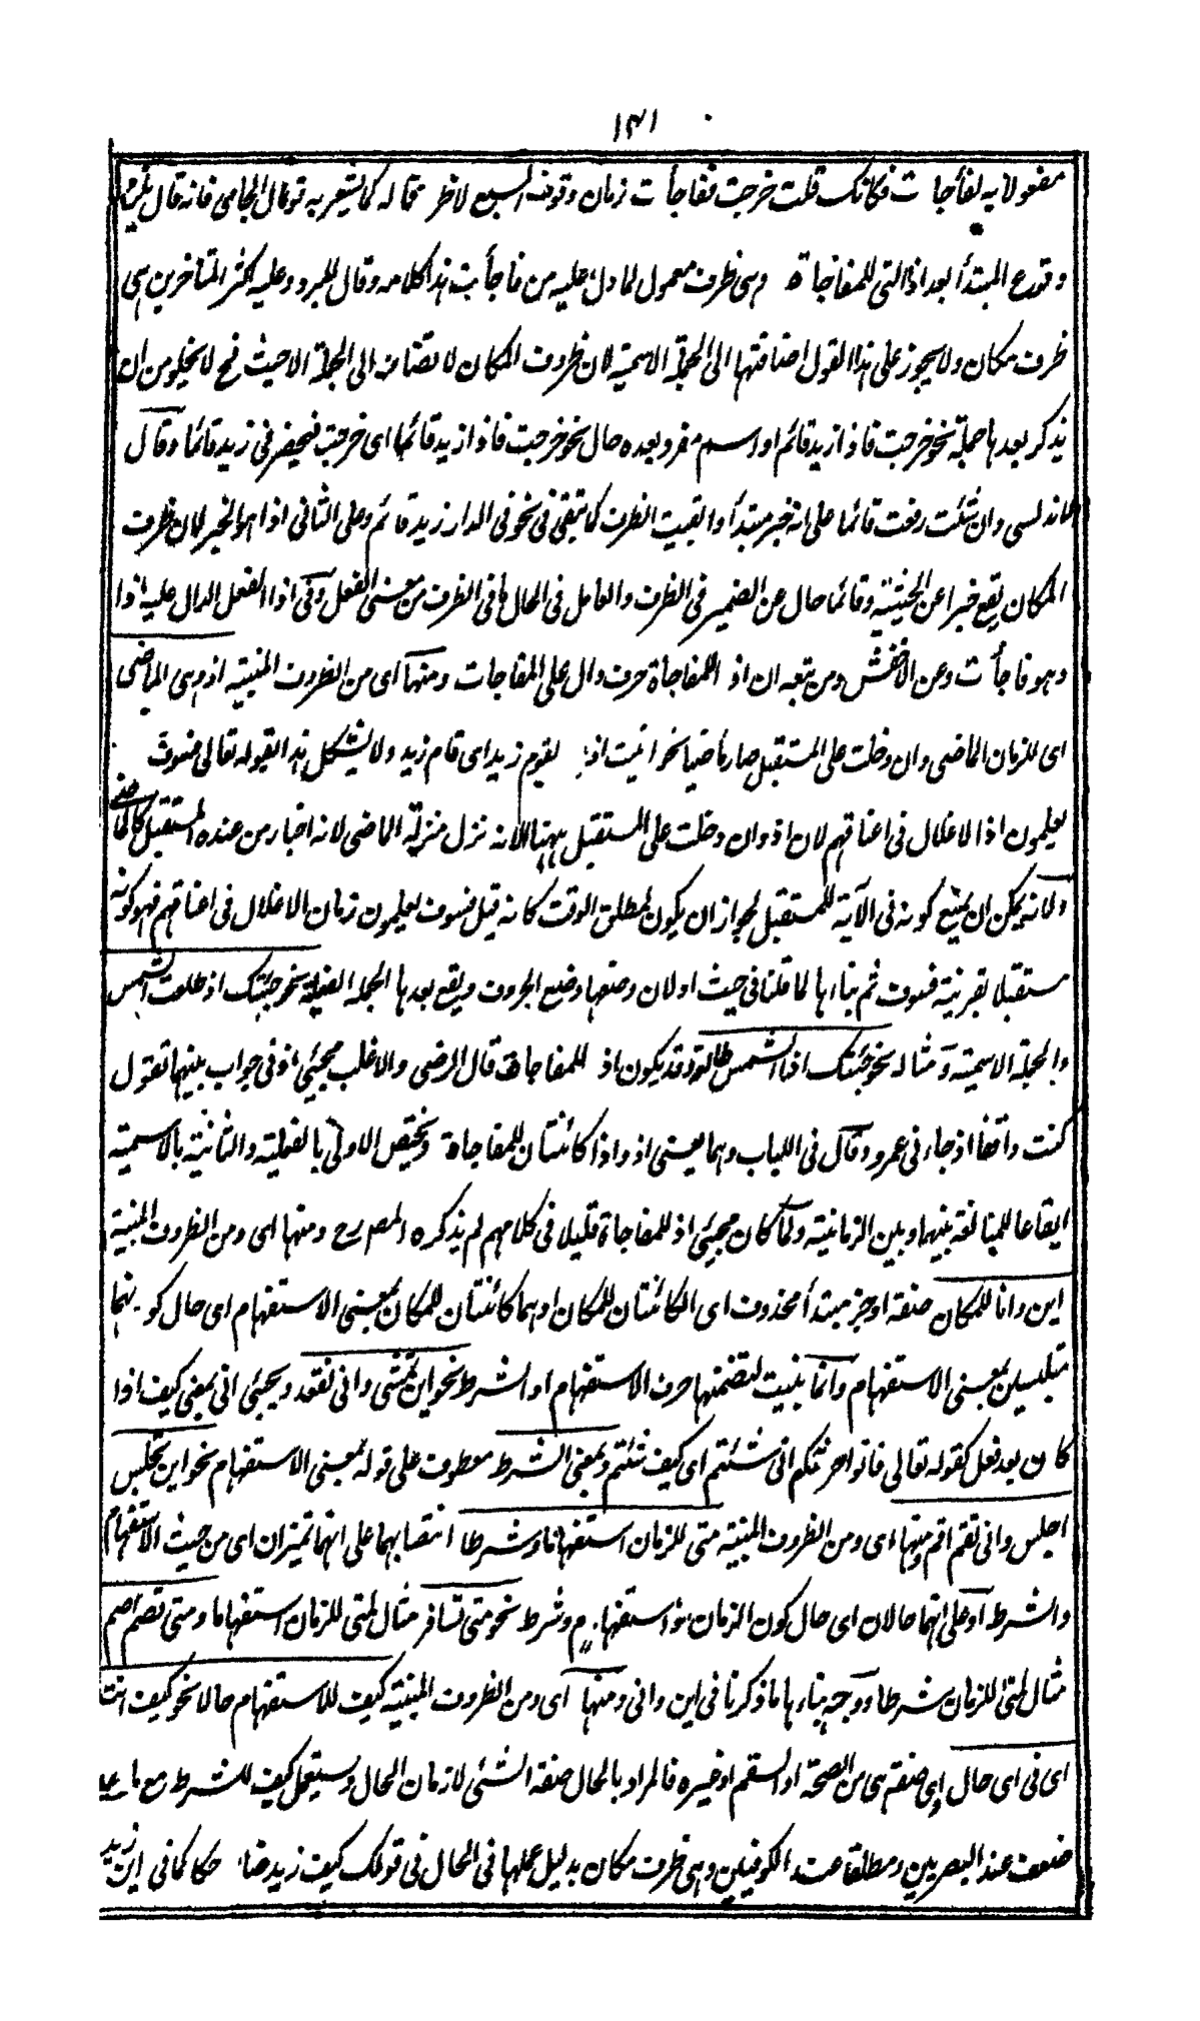 ۱۴۱
مفعولا به لفاجأت فكانك قلت خرجت ففاجأت زمان وقوف السبع لا ظرفا له كما يشعر به قول الجامى فانه قال
وقوع المبتدأ بعد اذا التى للمفاجاة وهى ظرف معمول لما دل عليه من فاجأت هذا كلامه وقال المبرد وعليه اكثر المتاخرين هى
ظرف مكان ولا يجوز على هذا القول اضافتها الى الجملة الاسمية لان ظروف المكان لا تضاف الى الجملة الا حيث فح لا يخلو من ان
يذكر بعدها جملة نحو خرجت فاذا زيد قائم او اسم مفرد بعده حال نحو خرجت فاذا زيد قائما اى خرجت فبحضرتى زيد قائما وقال
الاندلسى وان شئت رفعت قائما على انه خبر مبتدأ وابقيت الظرف كما تبقى فى نحو فى الدار زيد قائم وعلى الثانى اذا هو الخبر لان ظرف
المكان يقع خبرا عن الجثية وقائما حال عن الضمير فى الظرف والعامل فى الحال ما فى الظرف من معنى الفعل وفى اذا الفعل الدال عليه اذا
وهو فاجأت وعن الاخفش ومن تبعه ان اذ اللمفاجأة حرف دال على المفاجات ومنها اى من الظروف المبنية اذ وهى الماضى
اى للزمان الماضى وان دخلت على المستقبل صار ماضيا نحو اتيت اذ يقوم زيد اى قام زيد ولا يشكل هذا بقوله تعالى فسوف
يعلمون اذ الاغلال فى اعناقهم لان اذ وان دخلت على المستقبل ههنا الا انه نزل منزلة الماضى لانه اخبار من عنده المستقبل كالماضى
ولانه يمكن ان يمنع كونه فى الآية للمستقبل لجواز ان يكون لمطلق الوقت كانه قيل فسوف يعلمون زمان الاغلال فى اعناقهم فهو كونه
مستقبلا بقرينة فسوف ثم بناءها لما قلنا فى حيث او لان وضعها وضع الحروف ويقع بعدها الجملة الفعلية نحو جئتك اذ طلعت الشمس
والجملة الاسمية ومثاله نحو جئتك اذ الشمس طالعة وقد يكون اذ للمفاجاة قال الرضى والاغلب مجيئ اذ فى جواب بينما تقول
كنت واقفا اذ جاءنى عمرو وقال فى اللباب وهما يعنى اذ واذا كائنتان للمفاجاة ويختص الاولى بالفعلية والثانية بالاسمية
ايقاعا للمخالفة بينهما وبين الزمانية ولما كان مجيئ اذ للمفاجاة قليلا فى كلامهم لم يذكره المص رح ومنها اى ومن الظروف المبنية
اين وانا للمكان صفة او خبر مبتدأ محذوف اى الكائنتان للمكان او هما كائنتان للمكان بمعنى الاستفهام اى حال كونهما
متلبسين بمعنى الاستفهام وانما بنيت لتضمنها حرف الاستفهام او الشرط نحو اين تمشى وانى تقعد ويجيئ انى بمعنى كيف اذا
كان بعد فعل كقوله تعالى فاتوا حرثكم انى شئتم اى كيف شئتم وبمعنى الشرط معطوف على قوله بمعنى الاستفهام نحو اين تجلس
اجلس وانى تقم اقم ومنها اى ومن الظروف المبنية متى للزمان استفهاما وشرطا انتصابهما على انهما تميزان اى من حيث الاستفهام
والشرط او على انهما حالان اى حال كون الزمان ذا استفهام وشرط نحو متى تسافر مثال لمتى للزمان استفهاما ومتى تصم اصم
مثال لمتى للزمان شرطا ووجه بناءها ما ذكرنا فى اين وانى ومنها اى ومن الظروف المبنية كيف للاستفهام حالا نحو كيف انت
اى فى اى حال واى صفة هى من الصحة او السقم او غيره فالمراد بالحال صفة الشئى لا زمان الحال ويستعمل كيف للشرط مع ما على
ضعف عند البصريين ومطلقا عند الكوفيين وهى ظرف مكان بدليل عملها فى الحال فى قولك كيف زيد ضاحكا كما فى اين زيد